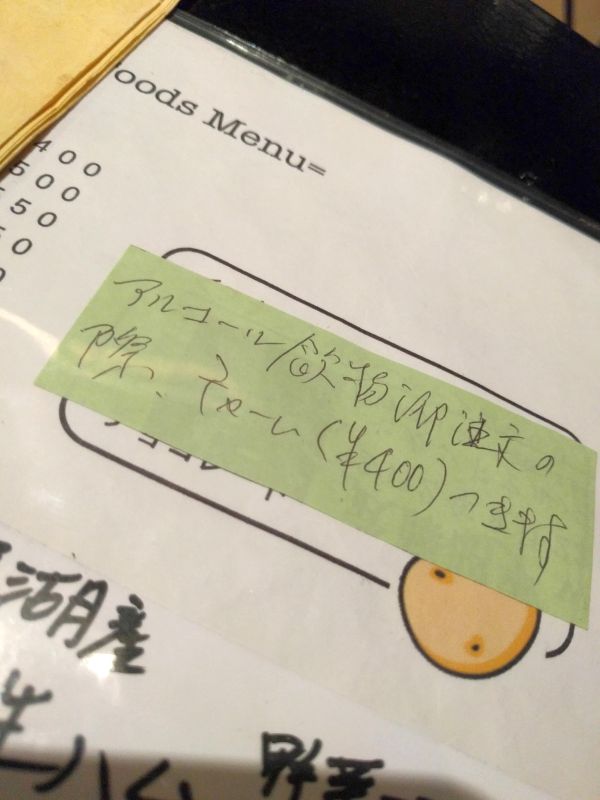 oods Menu=
400
500
550
50
0
アルコール飲物御注文の
際、チャーム(¥400)つきます
湖産
生ハム
野菜